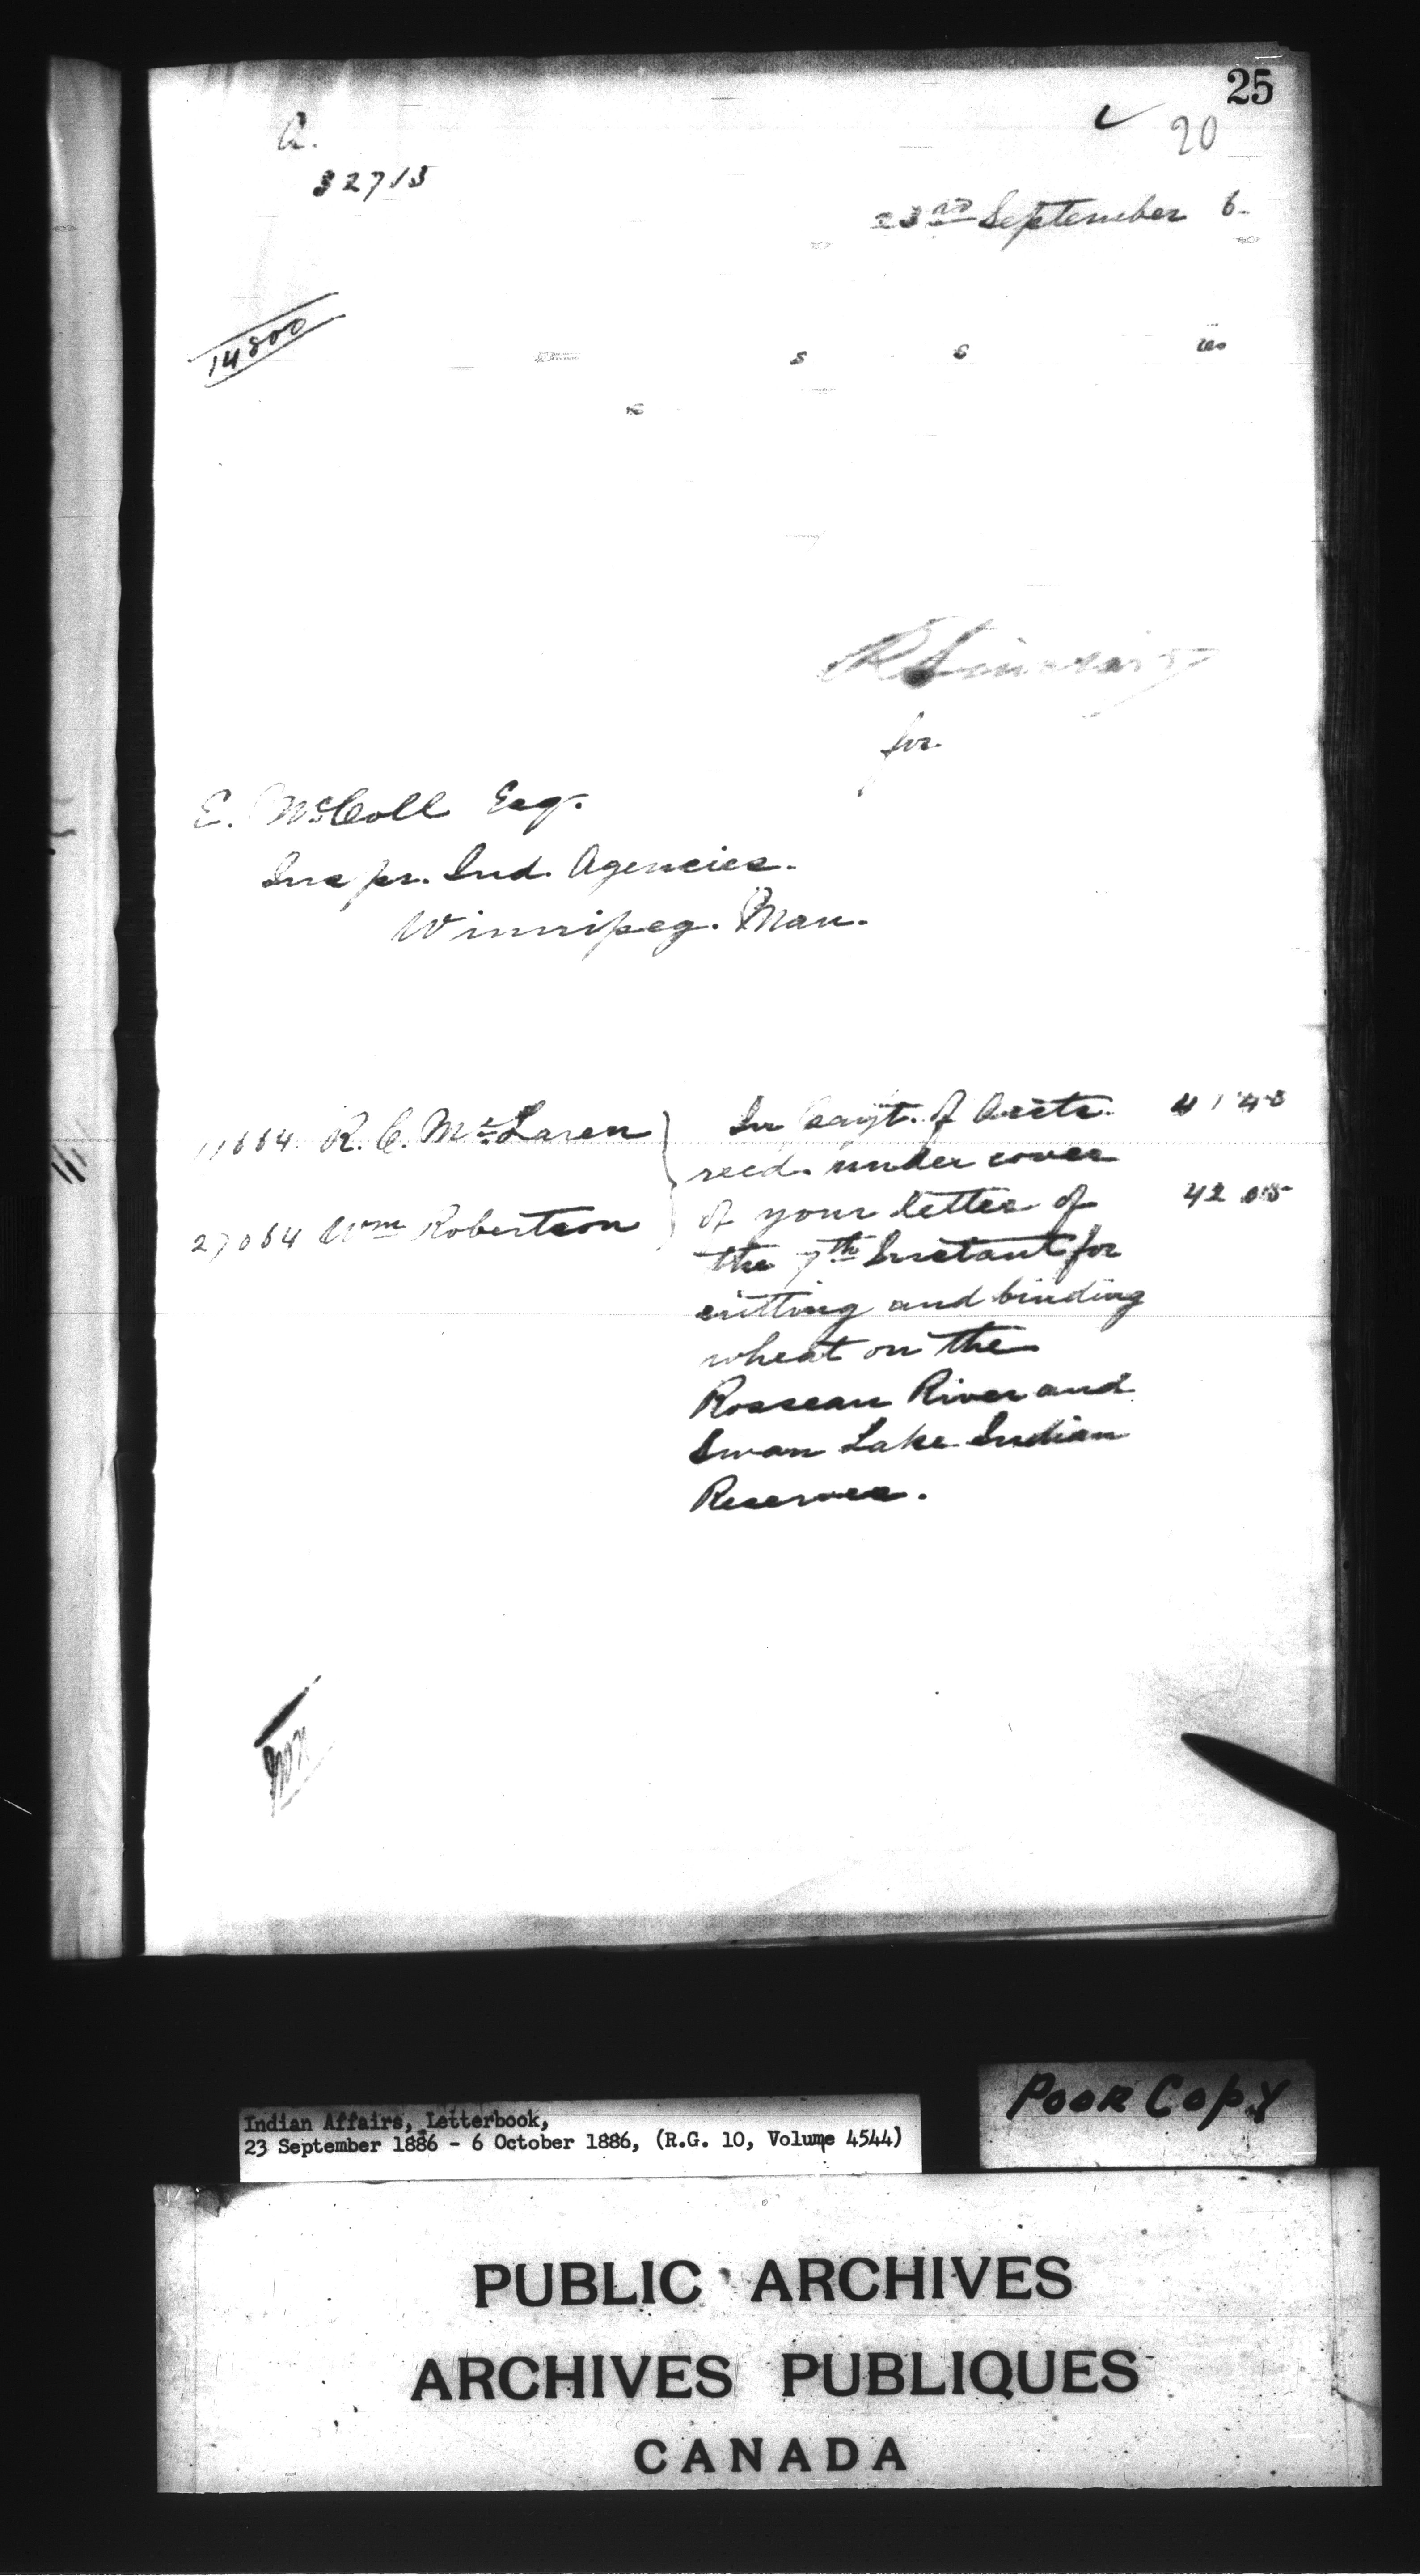 25
20
A.
32715
23rd September 6
14800
s s ies
R Sinclair
for
E. McColl Esq.
Inspr. Ind. Agencies.
Winnipeg. Man.
R. C. McLaren
In payt. of accts.
recd. under cover
27064 Wm Robertson
of your letter of
the 7th Instant for
cutting and binding
wheat on the
Rosseau River and
Swan Lake Indian
Reserves.
Poor Copy
Indian Affairs, Letterbook,
23 September 1886 - 6 October 1886, (R.G. 10, Volume 4544)
PUBLIC ARCHIVES
ARCHIVES PUBLIQUES
CANADA